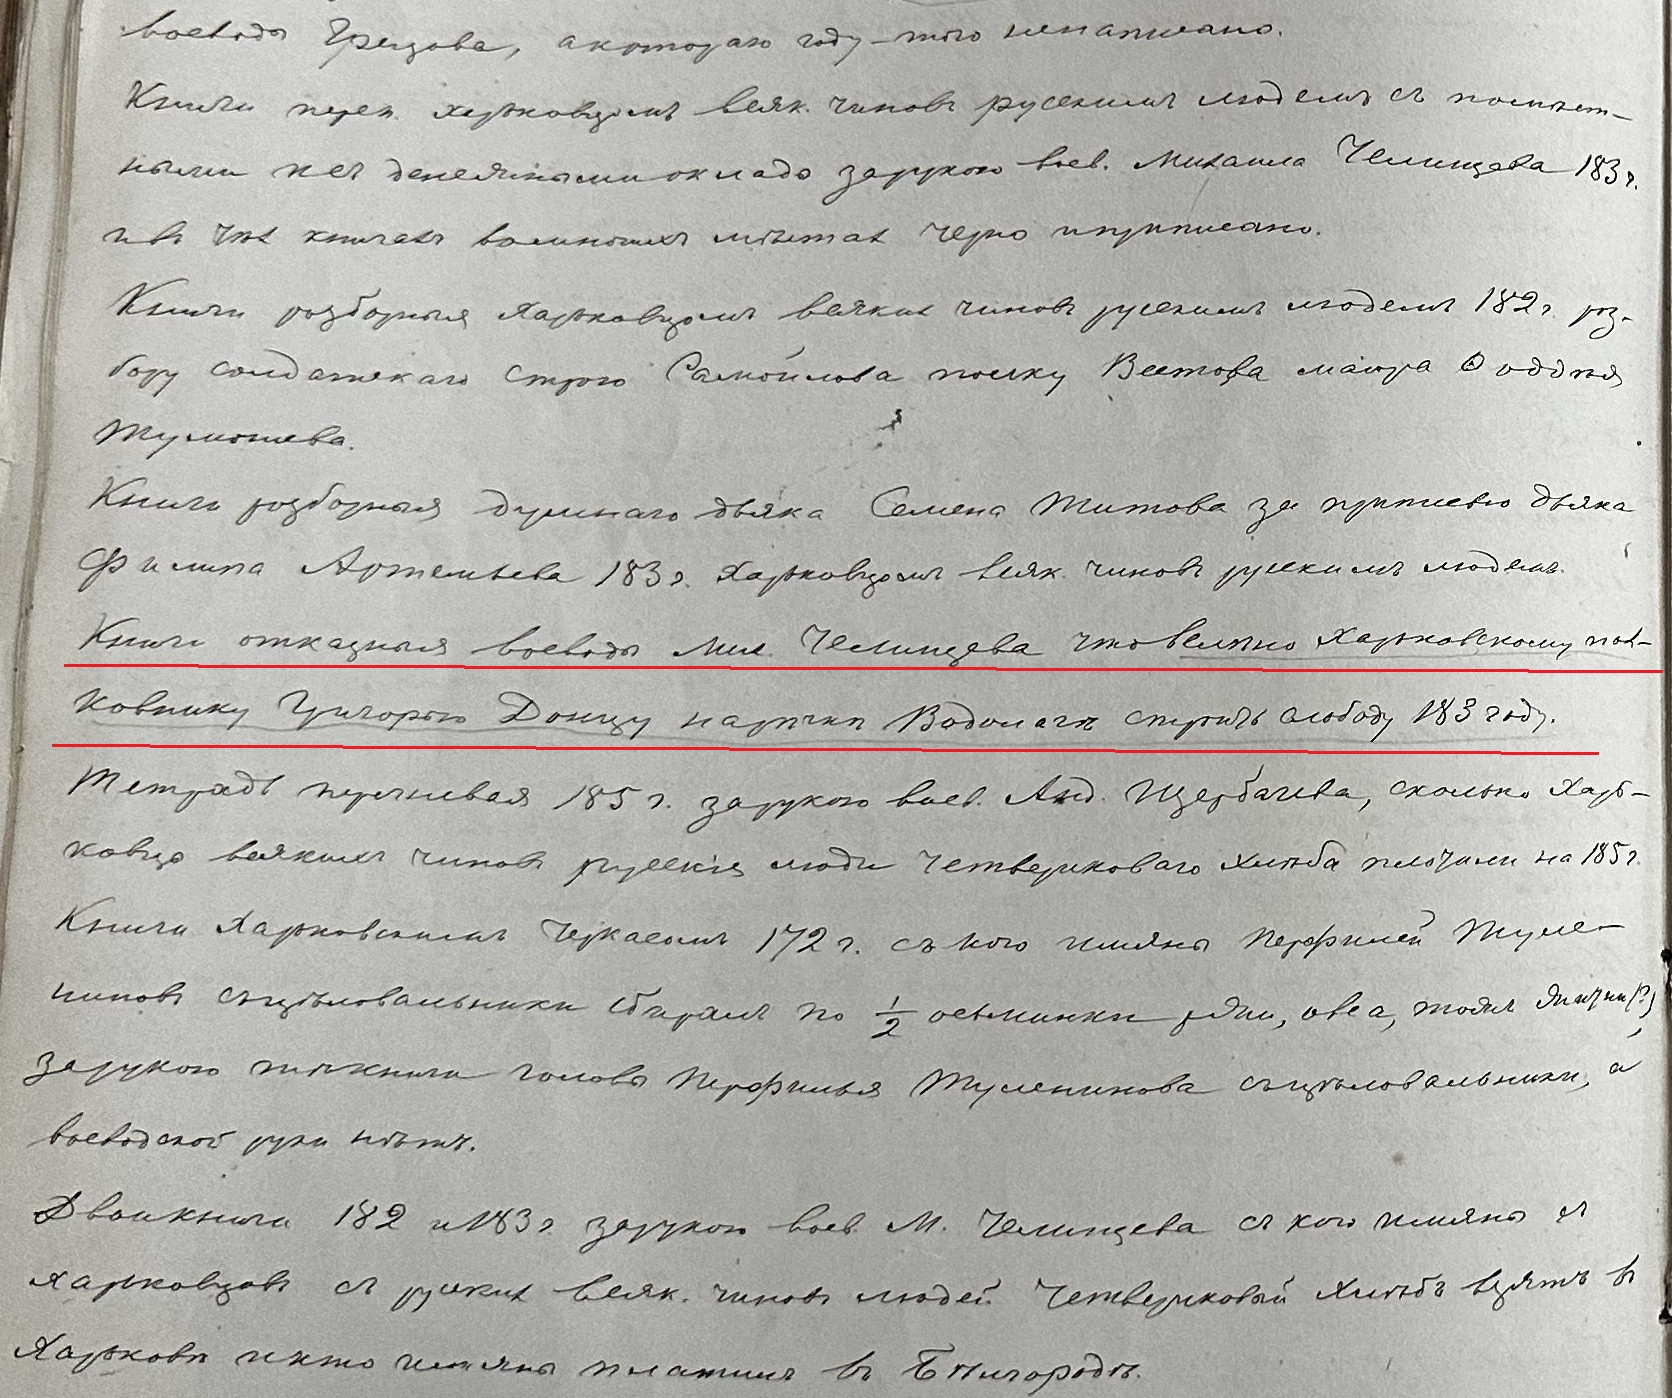 воеводы Грецова, а котораго году – того ненаписано.
Книги переп. харьковцомъ всяк. чиновъ русскимъ людемъ съ помѣст-
ными и съ денежными окладо за рукою воев. Михаила Челищева 183 г.
и въ тѣхъ книгахъ во многихъ мѣстах черно и приписано.
Книги розборныя харьковцомъ всяких чиновъ русскимъ людемъ 182 г. роз-
бору солдатскаго строю Самойлова полку Вестова маіора
Тумошева.
Книги розборныя думнаго дьяка Семена Титова за приписью дьяка
Филипа Артемьева 183 г. харьковцомъ всяк. чиновъ русскимъ людемъ.
Книги отказныя воеводы Мих. Челищева что велѣно харьковскому пол-
ковнику Григорью Донцу на рѣчки Водолаги строить слободу 183 году.
Тетрадь перечневая 185 г. за рукою воев. Анд. Щербачева, сколько харь-
ковцо всякихъ чиновъ русскія люди четвериковаго хлѣба платили на 185 г.
Книги харьковскимъ черкасомъ 172 г. съ кого имяны Перфилей Туле-
ниновъ съ цѣловальники сбиралъ по ½ осьминки ржи, овса, тожъ (?)
за рукою тѣхъ книги головы Перфилья Туленинова съ цѣловальники, а
воеводской руки нѣтъ.
Двои книги 182 и 183 г. за рукою воев. М. Челищева съ кого имяны съ
харьковцовъ съ руских всяк. чиновъ людей четвериковый хлѣбъ взятъ въ
Харьковѣ и кто имяны платилъ въ Бѣлгородѣ.